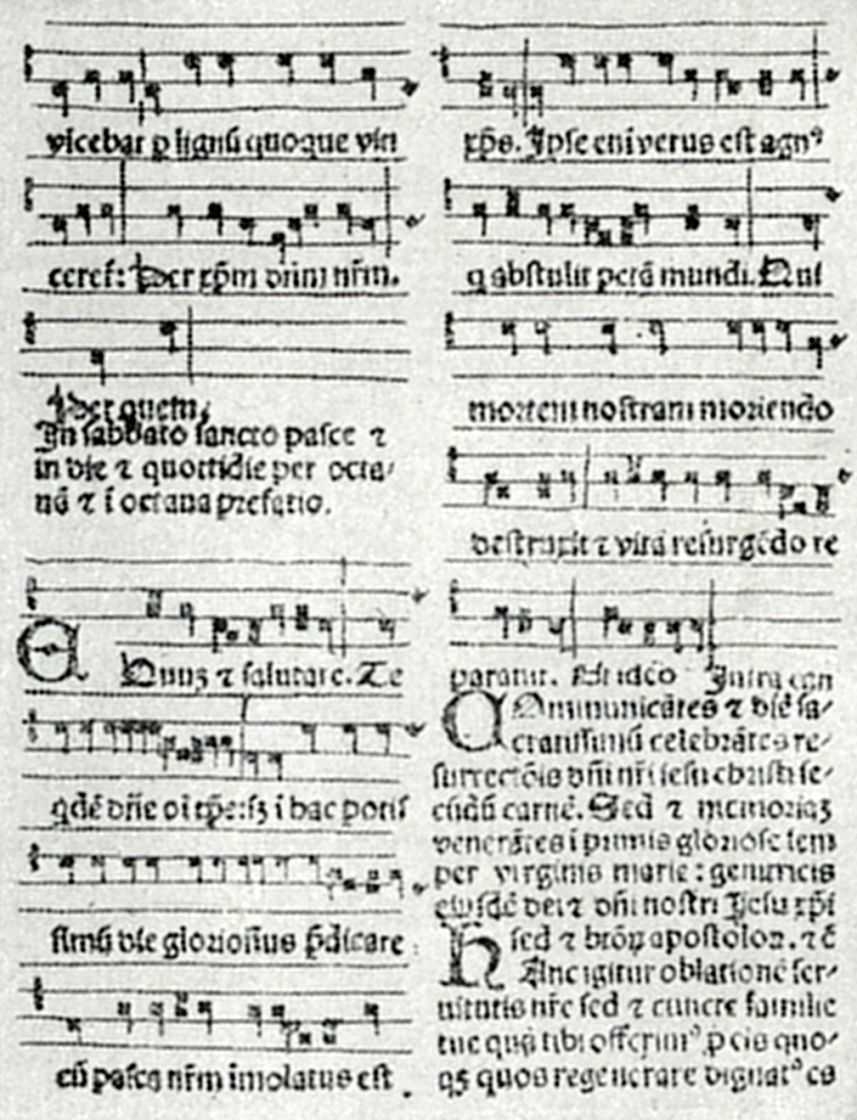 vicebat p lignū quoque vin
ceret: Per xp̄m dn̄m nr̄m.
Per quem,
In sabbato sancto pasce ⁊
in die ⁊ quottidie per octa/
uā ⁊ ī octaua prefatio.
EQuuꝫ ⁊ salutare. Te
qdē dn̄e oī tp̄e: sꝫ ī hac potis
simū die gloriosius p̄dicare
cū pasca nr̄m imolatus est.
xp̄s. Ipse eni verus est agnꝰ
q abstulit pctā mundi. Qui
mortem nostram moriendo
destruxit ⁊ vitā resurgēdo re
parauit. Et ideo Infra can
COmmunicātes ⁊ diē sa/
cratissimū celebrātes re/
surrectōis dn̄i nr̄i iesu christi se/
cūdū carnē. Sed ⁊ memoriaꝫ
venerātes ī primis gloriose sem
per virginis marie: genitricis
eiusdē dei ⁊ dn̄i nostri Jesu xp̄i
sed ⁊ btōꝝ apostoloꝝ. ⁊ c̄
HAnc igitur oblationē ser/
uitutis nr̄e sed ⁊ cuncte familie
tue quā tibi offerimꝰ p eis quo/
qꝫ quos regenerare dignatꝰ es